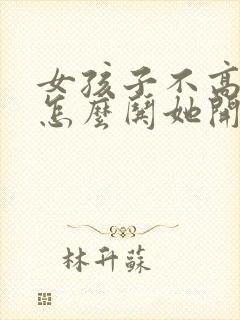 女孩子不高
怎麼鬨她開
林升蘇